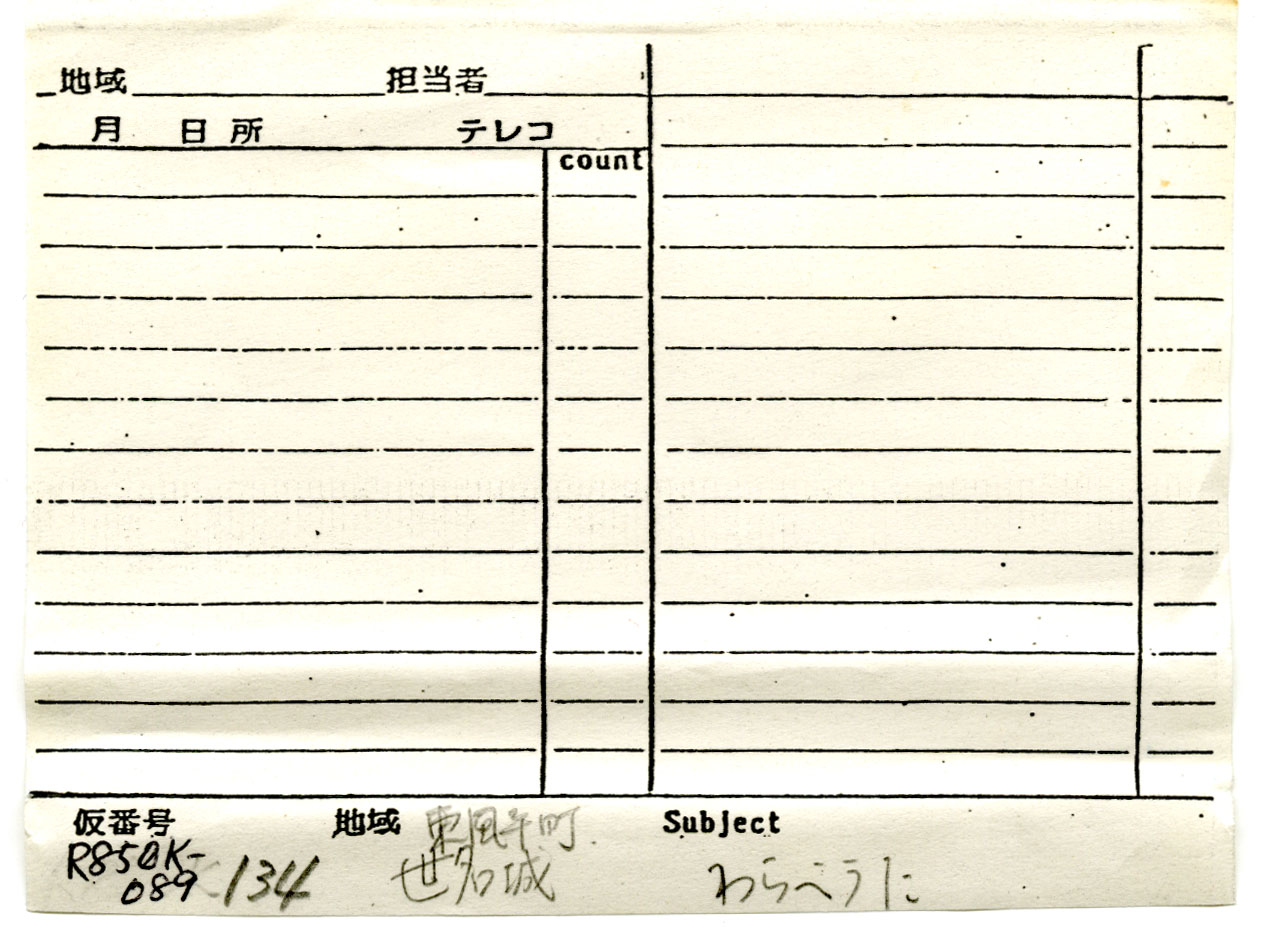 地域 担当者
月 日 所 テレコ
count
仮番号 地域 東風平町 Subject
R850K-089 134 世名城 わらべうた